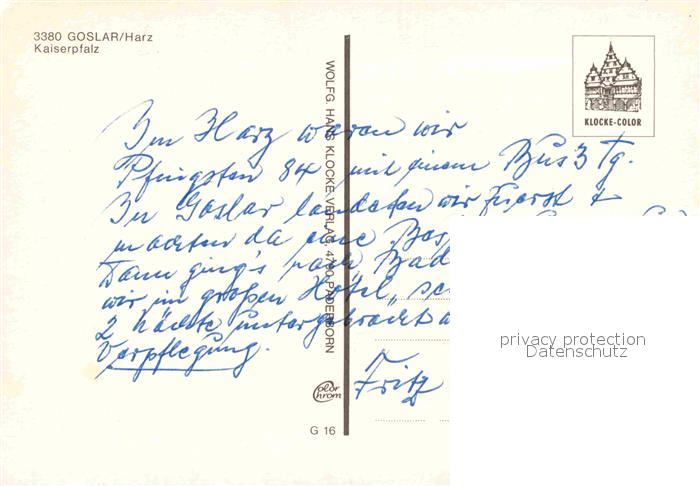 3380 GOSLAR/Harz
Kaiserpfalz
KLOCKE-COLOR
WOLFG. HANS KLOCKE VERLAG, 4790 PADERBORN
Im Harz waren wir
Pfingsten 84 mit einem Bus 3 Tg.
In Goslar landeten wir zuerst +
machten da eine
Dann ging's nach Bad
wir im großen Hotel
2 Nächte untergebracht
Verpflegung.
Fritz
Color
chrom
G 16
privacy protection
Datenschutz